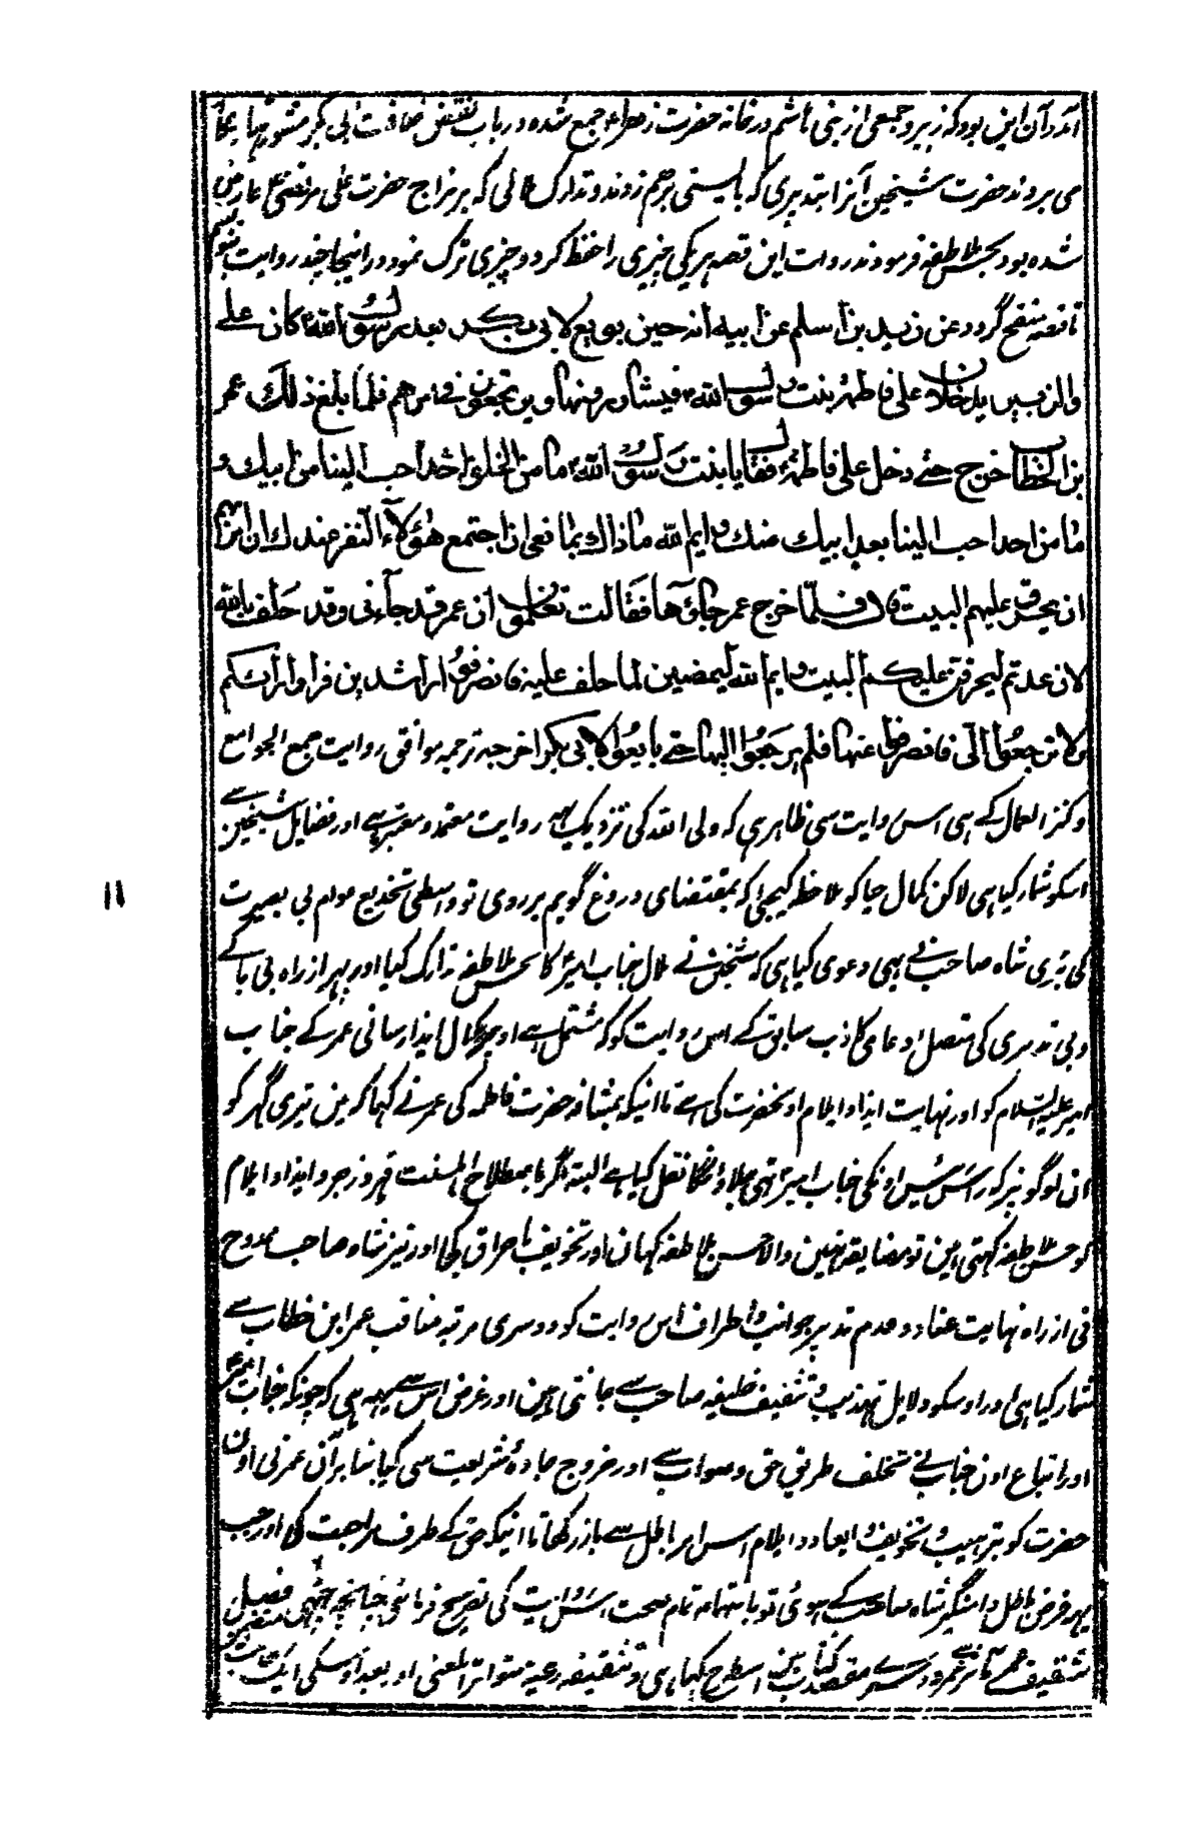 آمد آن این بود که زبیر و جمعی از بنی هاشم در خانه حضرت زهراء جمع شده در باب نقض خلافت ابی بکر مشورتها بکار
می بردند حضرت شیخین آنرا بتدبیری که بایستی برهم زدند و تدارک ملالی که بر مزاج حضرت علی مرتضی عارض
شده بود بحسن ملاطفه فرمودند روات این قصه هریکی چیزی را حفظ کرد و چیزی ترک نمود در اینجا چند روایت بنویسیم
تا قصه منقح گردد عن زید بن اسلم عن ابیه انه حین بویع لابی بکر بعد رسول الله کان علی
والزبیر یدخلان علی فاطمة بنت رسول الله فیشاورونها ویرتجعون فی امرهم فلما بلغ ذلک عمر
بن الخطاب خرج حتی دخل علی فاطمة فقال یا بنت رسول الله ما من الخلق احد احب الینا من ابیک و
ما من احد احب الینا بعد ابیک منک و ایم الله ما ذاک بمانعی ان اجتمع هؤلاء النفر عندک ان امرتهم
ان یحرق علیهم البیت قال فلما خرج عمر جاؤها فقالت تعلمون ان عمر قد جاءنی وقد حلف بالله
لان عدتم لیحرقن علیکم البیت و ایم الله لیمضین لما حلف علیه فانصرفوا راشدین فراوا رأیکم
ولا ترجعوا الی فانصرفوا عنها فلم یرجعوا الیها حتی بایعوا لابی بکر اخرجه ترجمه موافق روایت جمع الجوامع
و کنز العمال کے ہی اس روایت سی ظاہر ہی کہ ولی اللہ کی نزدیک یہہ روایت معتمد و معتبر ہے اور فضایل شیخین سے
اسکو شمار کیا ہی لاکن کمال حیا کو ملاحظہ کیجئی کہ بمقتضای دروغ گویم بر روی تو واسطی تخدیع عوام بی بصیرت
کی بڑی شاہ صاحب نے یہی دعوی کیا ہی کہ شیخین نے ملال جناب امیر کا بحسن ملاطفہ تدارک کیا اور پہر از راہ بی باکے
و بی تدبری کی متصل ادعای کاذب سابق کے اس روایت کو کہ مشتمل ہے اوپر کمال ایذا رسانی عمر کے جناب
امیر علیہ السلام کو اور نہایت ایذا و ایلام اونحضرت کی ہے تا اینکہ بمشافہ حضرت فاطمہ کی عمر نے کہا کہ مین تیری گہر کو
ان لوگو نپر کہ راس رئیس اونکی جناب امیر تہی جلاؤنگا نقل کیا ہے البتہ اگر باصطلاح اہلسنت قہر و زجر و ایذا و ایلام
کو حسن ملاطفہ کہتی ہین تو مضایقہ نہین والا حسن ملاطفہ کہان اور تخویف باحراق کجا اور نیز شاہ صاحب ممدوح
نی از راہ نہایت عناد و عدم تدبر جوانب و اطراف اس روایت کو دوسری مرتبہ مناقب عمر ابن خطاب سے
شمار کیا ہی اور اوسکو دلایل تہذیب و تثقیف خلیفہ صاحب سے جانتی ہین اور غرض اس سے یہہ ہی کہ چونکہ جناب امیر
اور اتباع اون جناب نے تخلف طریق حق و صواب سے اور خروج جادۂ شریعت سی کیا بنا بر آن عمر نی اون
حضرت کو بترہیب و تخویف و ابعاد و ایلام اس امر باطل سے باز رکہا تا اینکہ حق کے طرف مراجعت کی اور جب
یہہ غرض باطل دامنگیر شاہ صاحب کے ہوئی تو باہتمام تمام صحت اس روایت کی تصریح فرمائی چنانچہ فصیل
تثقیف عمر مقصد کتاب مین اسطرح کہا ہی و تثقیفه رعیة متواتر المعنی اور بعد اوسکی ایک